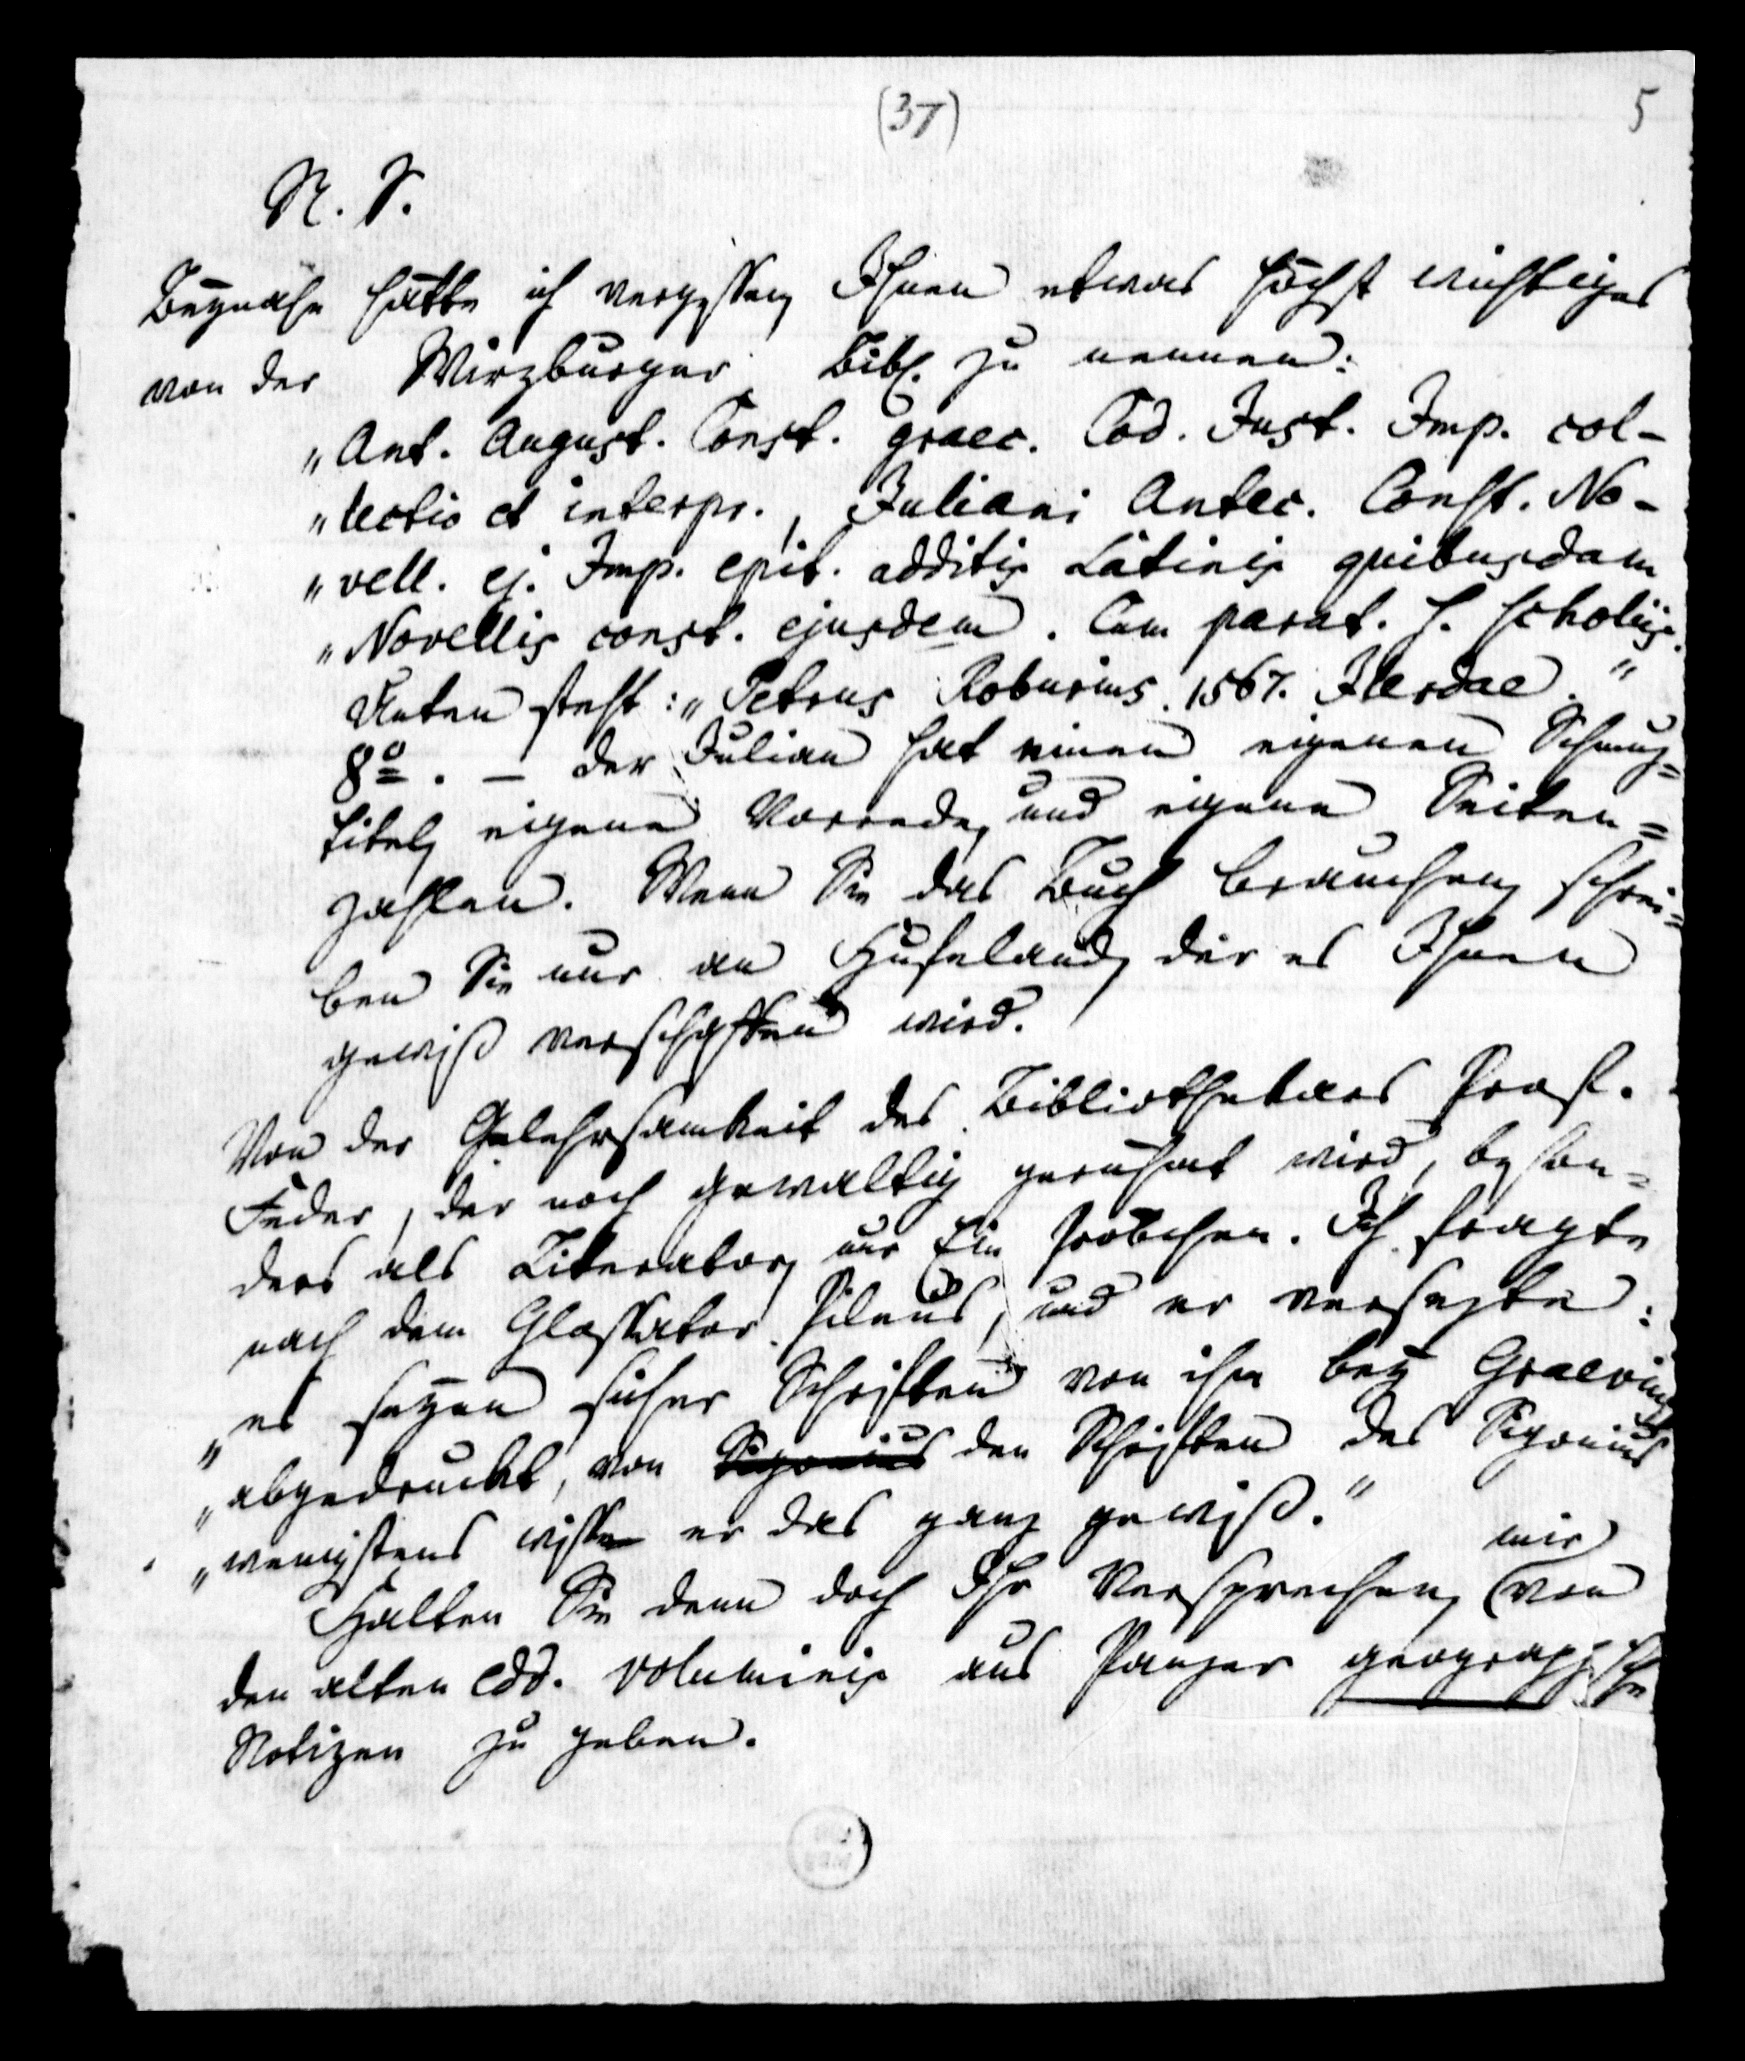 (37)
5
N. S.
Beynahe hätte ich vergessen, Ihnen etwas höchst wichtiges
von der Wirzburger Bibl. zu nennen:
„Ant. August. Const. graec. Cod. Just. Imp. col-
„lectio et interpr., Juliani Antec. Const. No-
„vell. ej. Imp. epit. additis Latinis quibusdam
„Novellis const. ejusdem. Cum parat. s. scholiis.
Unten steht: „Petrus Roburius. 1567. Ilerdae."
8º. – Der Julian hat einen eigenen Schmuz=
titel, eigene Vorrede, und eigene Seiten=
zahlen. Wenn Sie das Buch brauchen, schrei=
ben Sie nur an Hufeland, der es Ihnen
gewiß verschaffen wird.
Von der Gelehrsamkeit des Bibliothekars Prof.
Feder, der noch gewaltig gerühmt wird, beson=
ders als Literator, nur Ein Pröbchen. Ich fragte
nach dem Glossator Pileus, und er versezte:
„es seyen sicher Schriften von ihm bey Graevius
„abgedruckt, von Sigonius den Schriften des Sigonius
„wenigstens wisse er das ganz gewiß."
mir
Halten Sie denn doch Ihr Versprechen, von
den alten edd. voluminis aus Panzer geographische
Notizen zu geben.